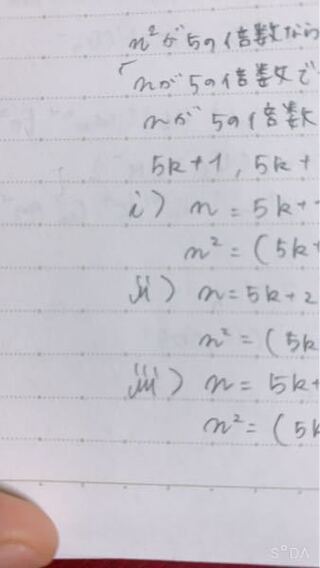 n²が5の倍数なら
「nが5の倍数で
nが5の倍数
5k+1, 5k+
i) n = 5k+
n² = (5k+
ii) n = 5k+2
n² = (5k
iii) n = 5k+
n² = (5k
SODA